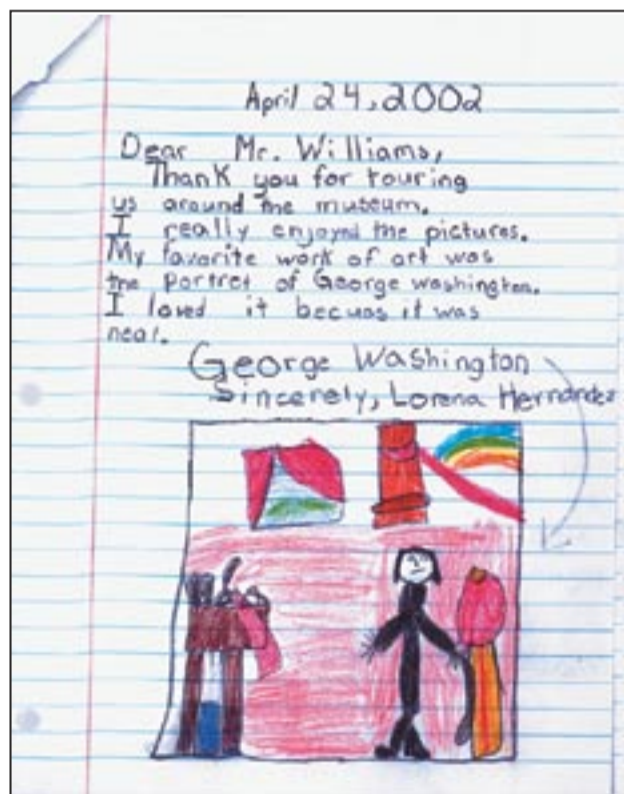 April 24, 2002
Dear Mr. Williams,
Thank you for touring
us around the museum.
I really enjoyed the pictures.
My favorite work of art was
the Portret of George washington.
I loved it becuas it was
neat.
George Washington
Sincerely, Lorena Hernandez